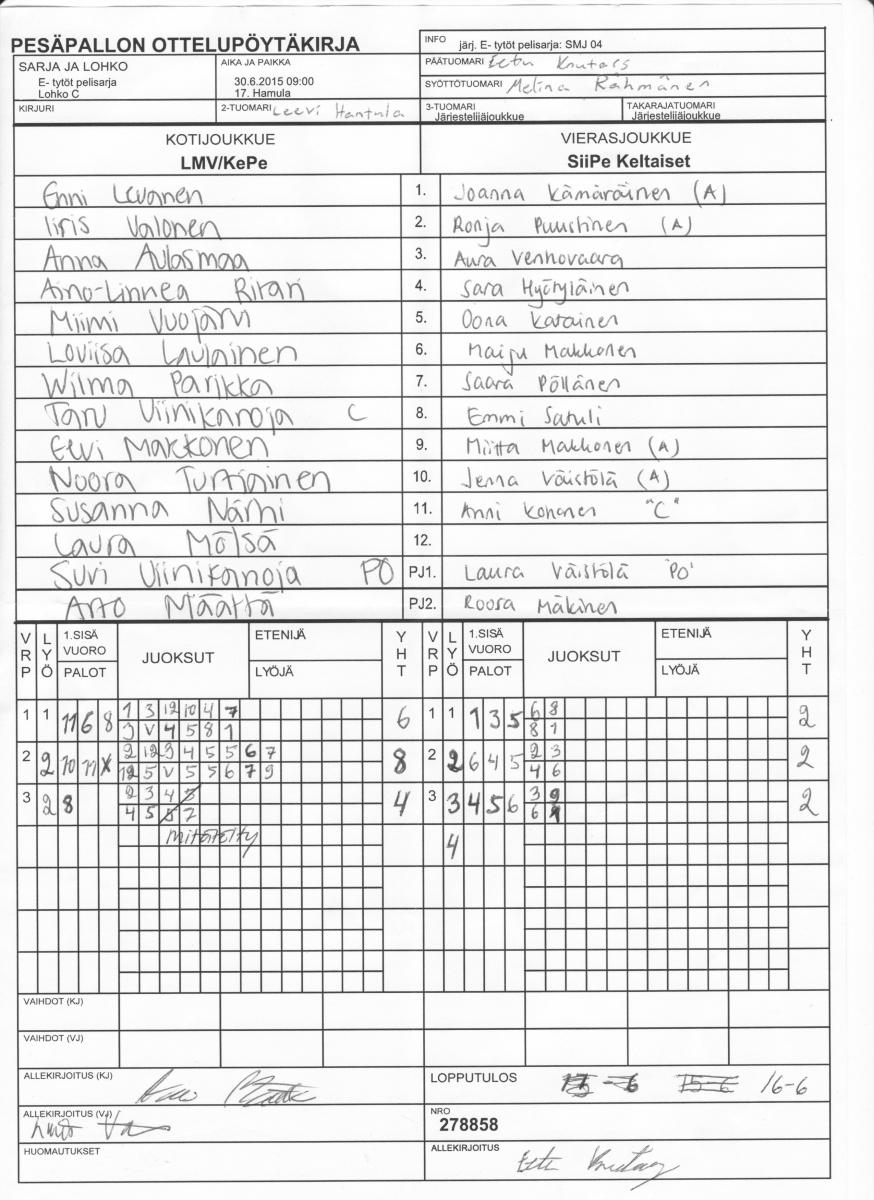 PESÄPALLON OTTELUPÖYTÄKIRJA
INFO järj. E- tytöt pelisarja: SMJ 04
SARJA JA LOHKO
E- tytöt pelisarja
Lohko C
AIKA JA PAIKKA
30.6.2015 09:00
17. Hamula
PÄÄTUOMARI Eetu
SYÖTTÖTUOMARI Melina Rähmänen
KIRJURI
2-TUOMARI Leevi Hantula
3-TUOMARI
Järjestelijäjoukkue
TAKARAJATUOMARI
Järjestelijäjoukkue
KOTIJOUKKUE
LMV/KePe
VIERASJOUKKUE
SiiPe Keltaiset
Enni Levonen 1. Joanna Kämäräinen (A)
Iiris Valonen 2. Ronja Puustinen (A)
Anna Aulasmaa 3. Aura Venhovaara
Aino-Linnea Ritari 4. Sara Hyötyläinen
Miimi Vuojärvi 5. Oona Katainen
Loviisa Laulainen 6. Maiju Makkonen
Wilma Parikka 7. Saara Pöllänen
Taru Viinikanoja C 8. Emmi Satuli
Eevi Makkonen 9. Miitta Makkonen (A)
Noora Turtiainen 10. Jenna Väistölä (A)
Susanna Närhi 11. Anni Kononen "C"
Laura Mölsä 12.
Suvi Viinikanoja PO PJ1. Laura Väistölä 'PO'
Arto Määttä PJ2. Roosa Mäkinen
VRP LYÖ 1.SISÄ VUORO PALOT JUOKSUT ETENIJÄ LYÖJÄ YHT VRP LYÖ 1.SISÄ VUORO PALOT JUOKSUT ETENIJÄ LYÖJÄ YHT
1 3 12 10 4 7 6 8
1 1 11 6 8 6 1 1 1 3 5 2
3 V 4 5 8 1 8 1
2 12 3 4 5 5 6 7 2 3
2 2 10 11 X 8 2 2 6 4 5 2
12 5 V 5 5 6 7 9 4 6
2 3 4 3 3 9
3 2 8 4 3 3 4 5 6 2
4 5 5 7 6 1
Mitätöity 4
VAIHDOT (KJ)
VAIHDOT (VJ)
ALLEKIRJOITUS (KJ)
LOPPUTULOS 15-6 16-6
ALLEKIRJOITUS (VJ)
NRO
278858
HUOMAUTUKSET
ALLEKIRJOITUS